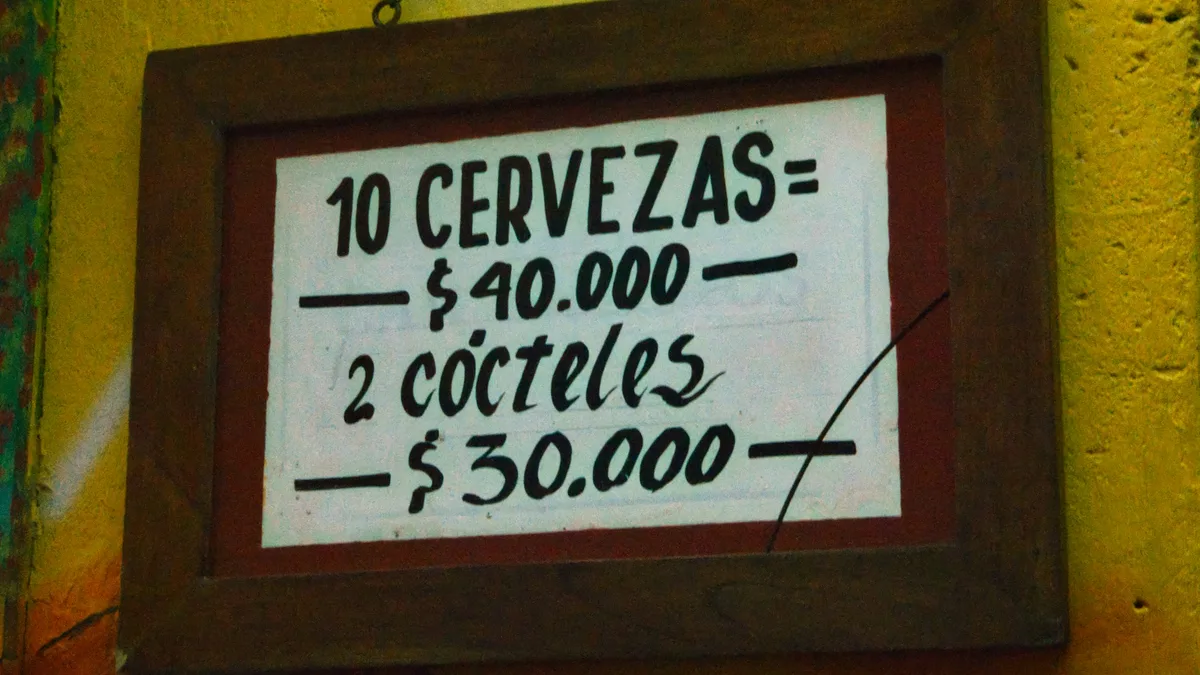 10 CERVEZAS=
— $40.000 —
2 cócteles
— $30.000 —